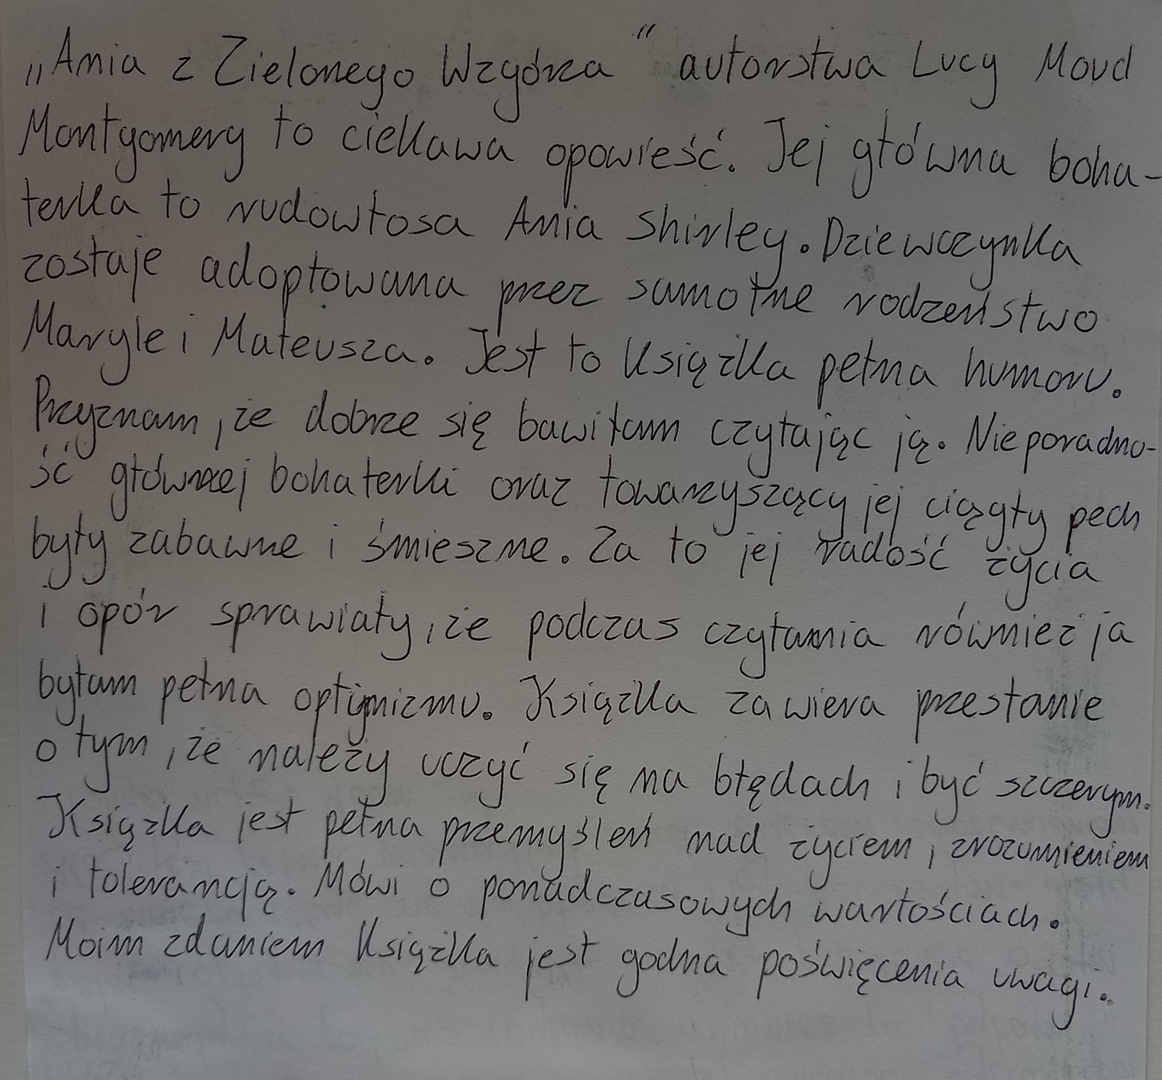 „Ania z Zielonego Wzgórza" autorstwa Lucy Moud
Montgomery to ciekawa opowieść. Jej główna boha-
terka to rudowłosa Ania Shirley. Dziewczynka
zostaje adoptowana przez samotne rodzeństwo
Maryle i Mateusza. Jest to książka pełna humoru.
Przyznam, że dobrze się bawiłam czytając ją. Nieporadno-
ść głównej bohaterki oraz towarzyszący jej ciągły pech
były zabawne i śmieszne. Za to jej radość życia
i opór sprawiały, że podczas czytania również ja
byłam pełna optymizmu. Książka zawiera przesłanie
o tym, że należy uczyć się na błędach i być szczerym.
Książka jest pełna przemyśleń nad życiem, zrozumieniem
i tolerancją. Mówi o ponadczasowych wartościach.
Moim zdaniem książka jest godna poświęcenia uwagi.